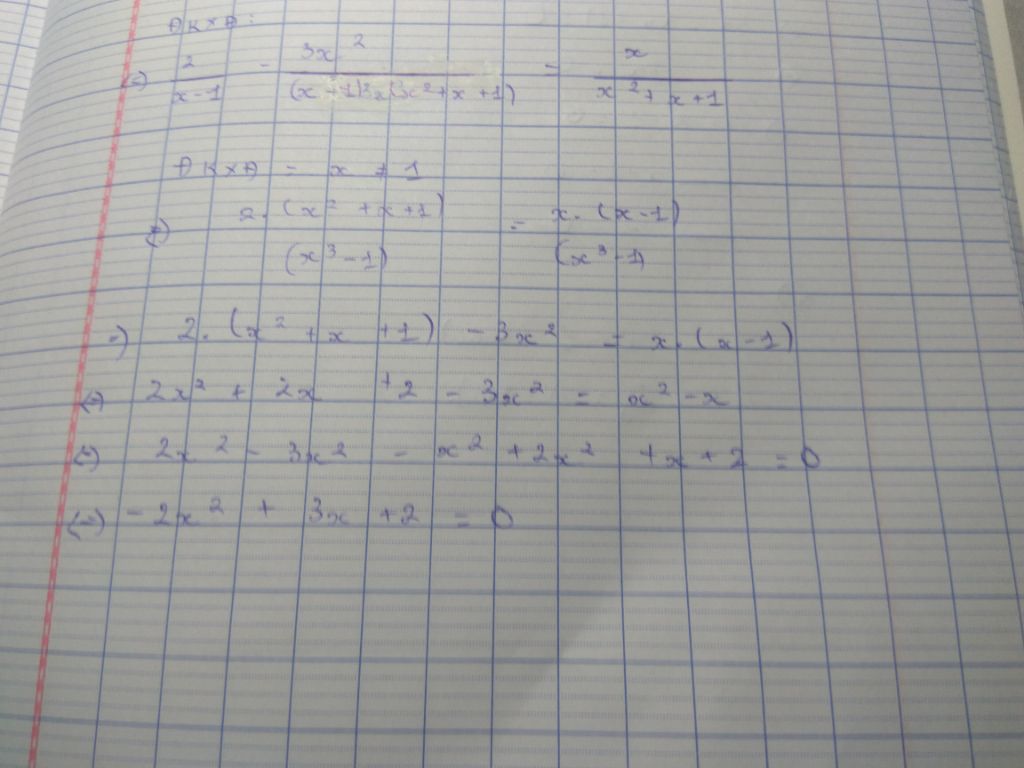 ĐKXĐ:
(=) 2/(x-1) - 3x²/((x-1)(x²+x+1)) = x/(x²+x+1)
ĐKXĐ = x ≠ 1
2.(x²+x+1)/(x³-1) = x.(x-1)/(x³-1)
=) 2.(x²+x+1) - 3x² = x.(x-1)
(=) 2x² + 2x +2 - 3x² = x² - x
(=) 2x² - 3x² - x² + 2x² +x+2 = 0
(=) -2x² + 3x +2 = 0